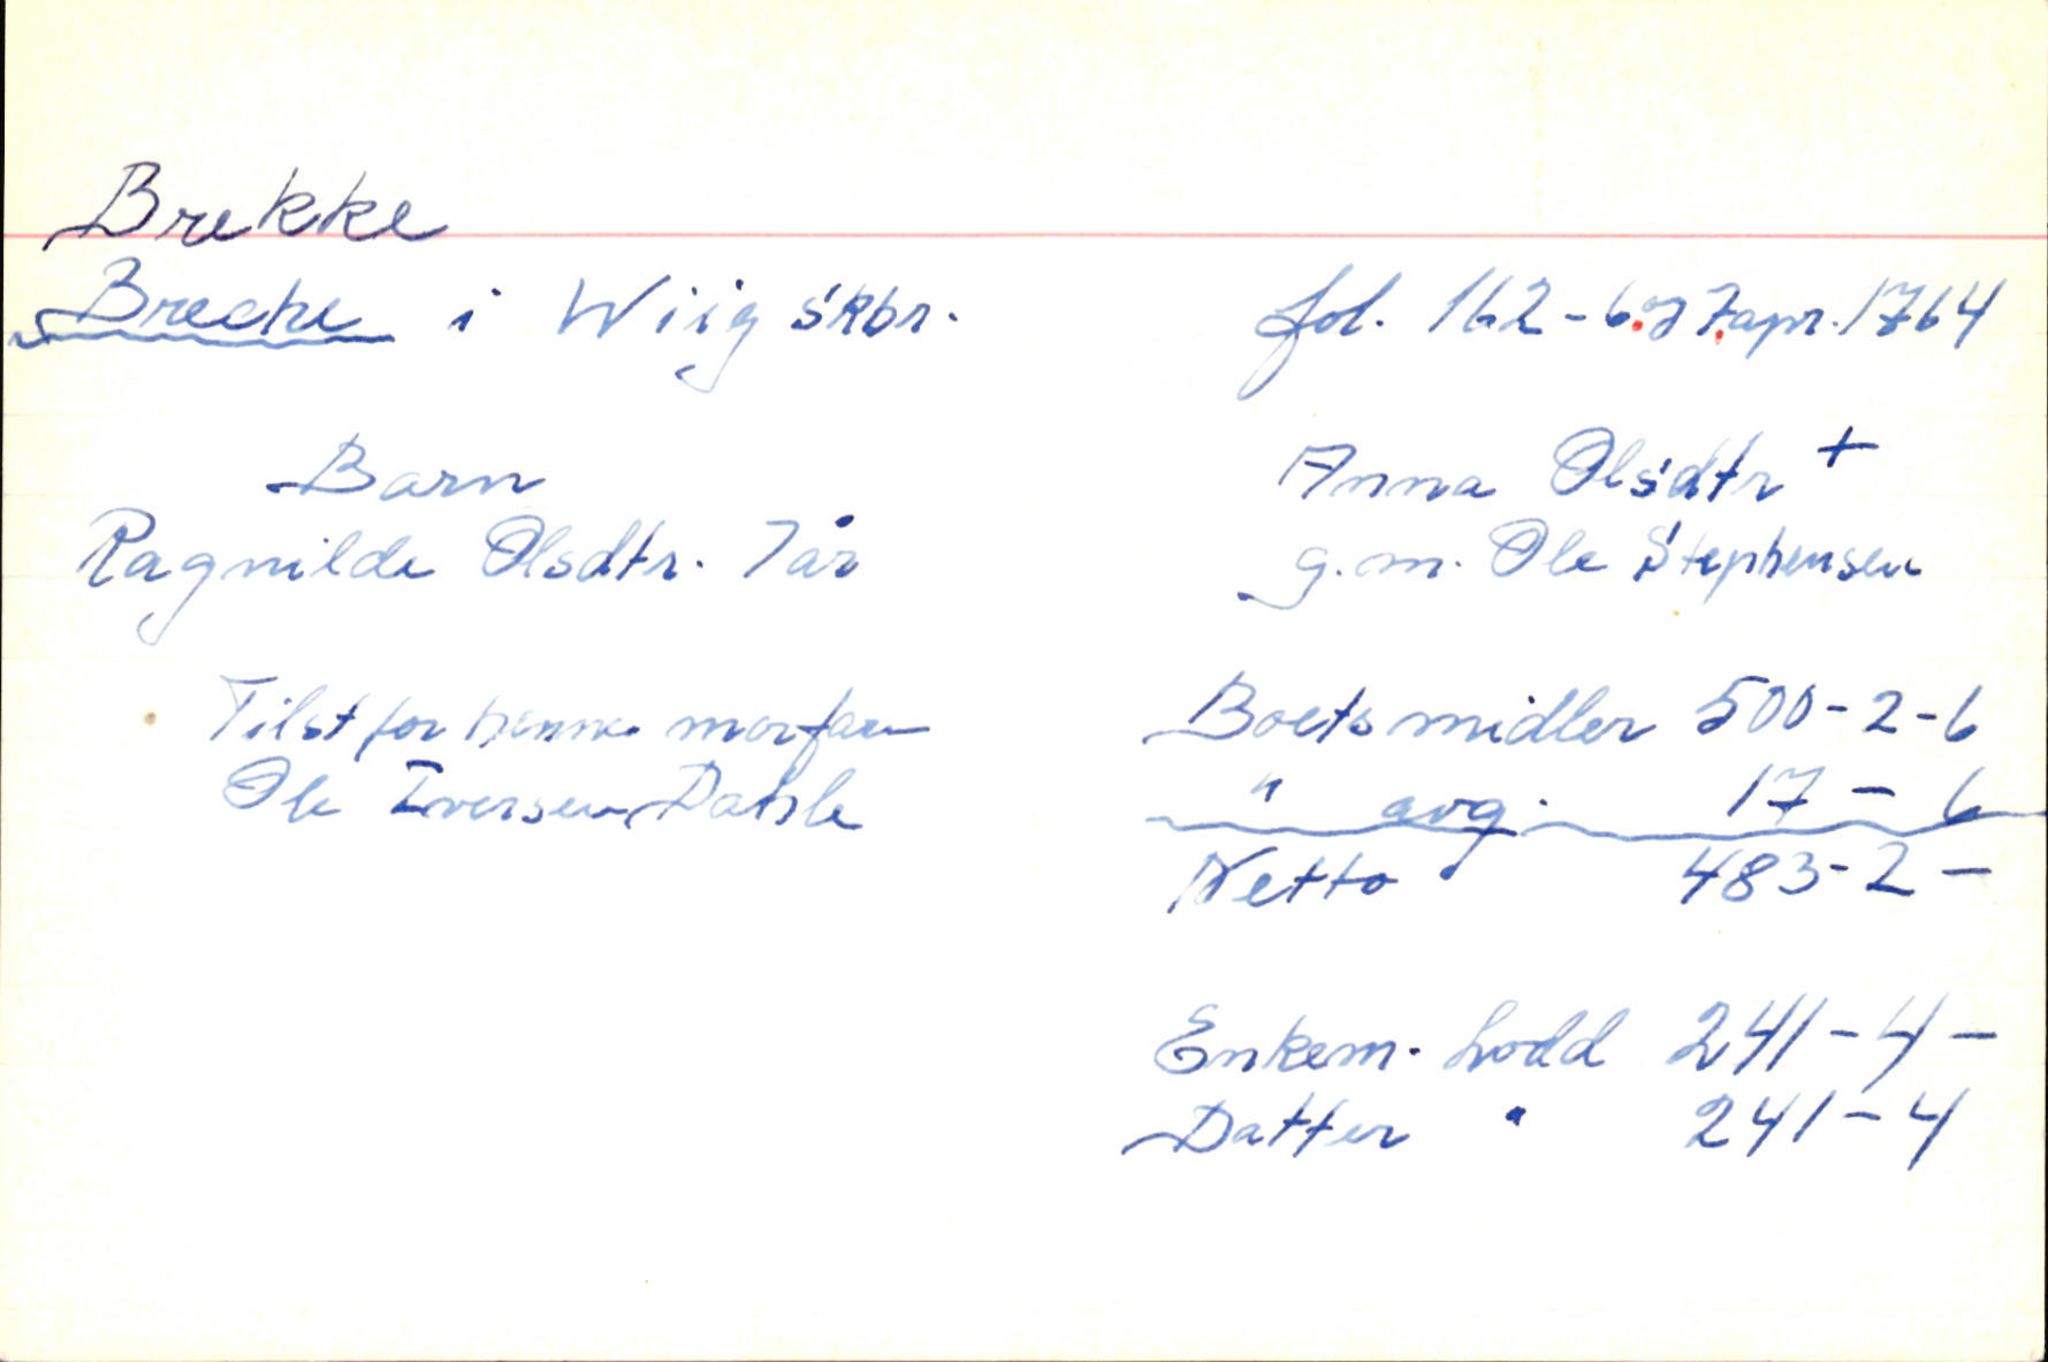 Brekke
Breche i Wiig skbr.
fol. 162-6.og 7.apr. 1764
Barn
Ragnilde Olsdtr. 7 år
Tilst for henne morfaren
Ole Iversen Dahle
Anna Olsdtr +
g.m. Ole Stephensen
Boets midler 500-2-6
" avg. 17 - 6
Netto 483-2 -
Enkem. Lodd 241-4-
Datter " 241-4